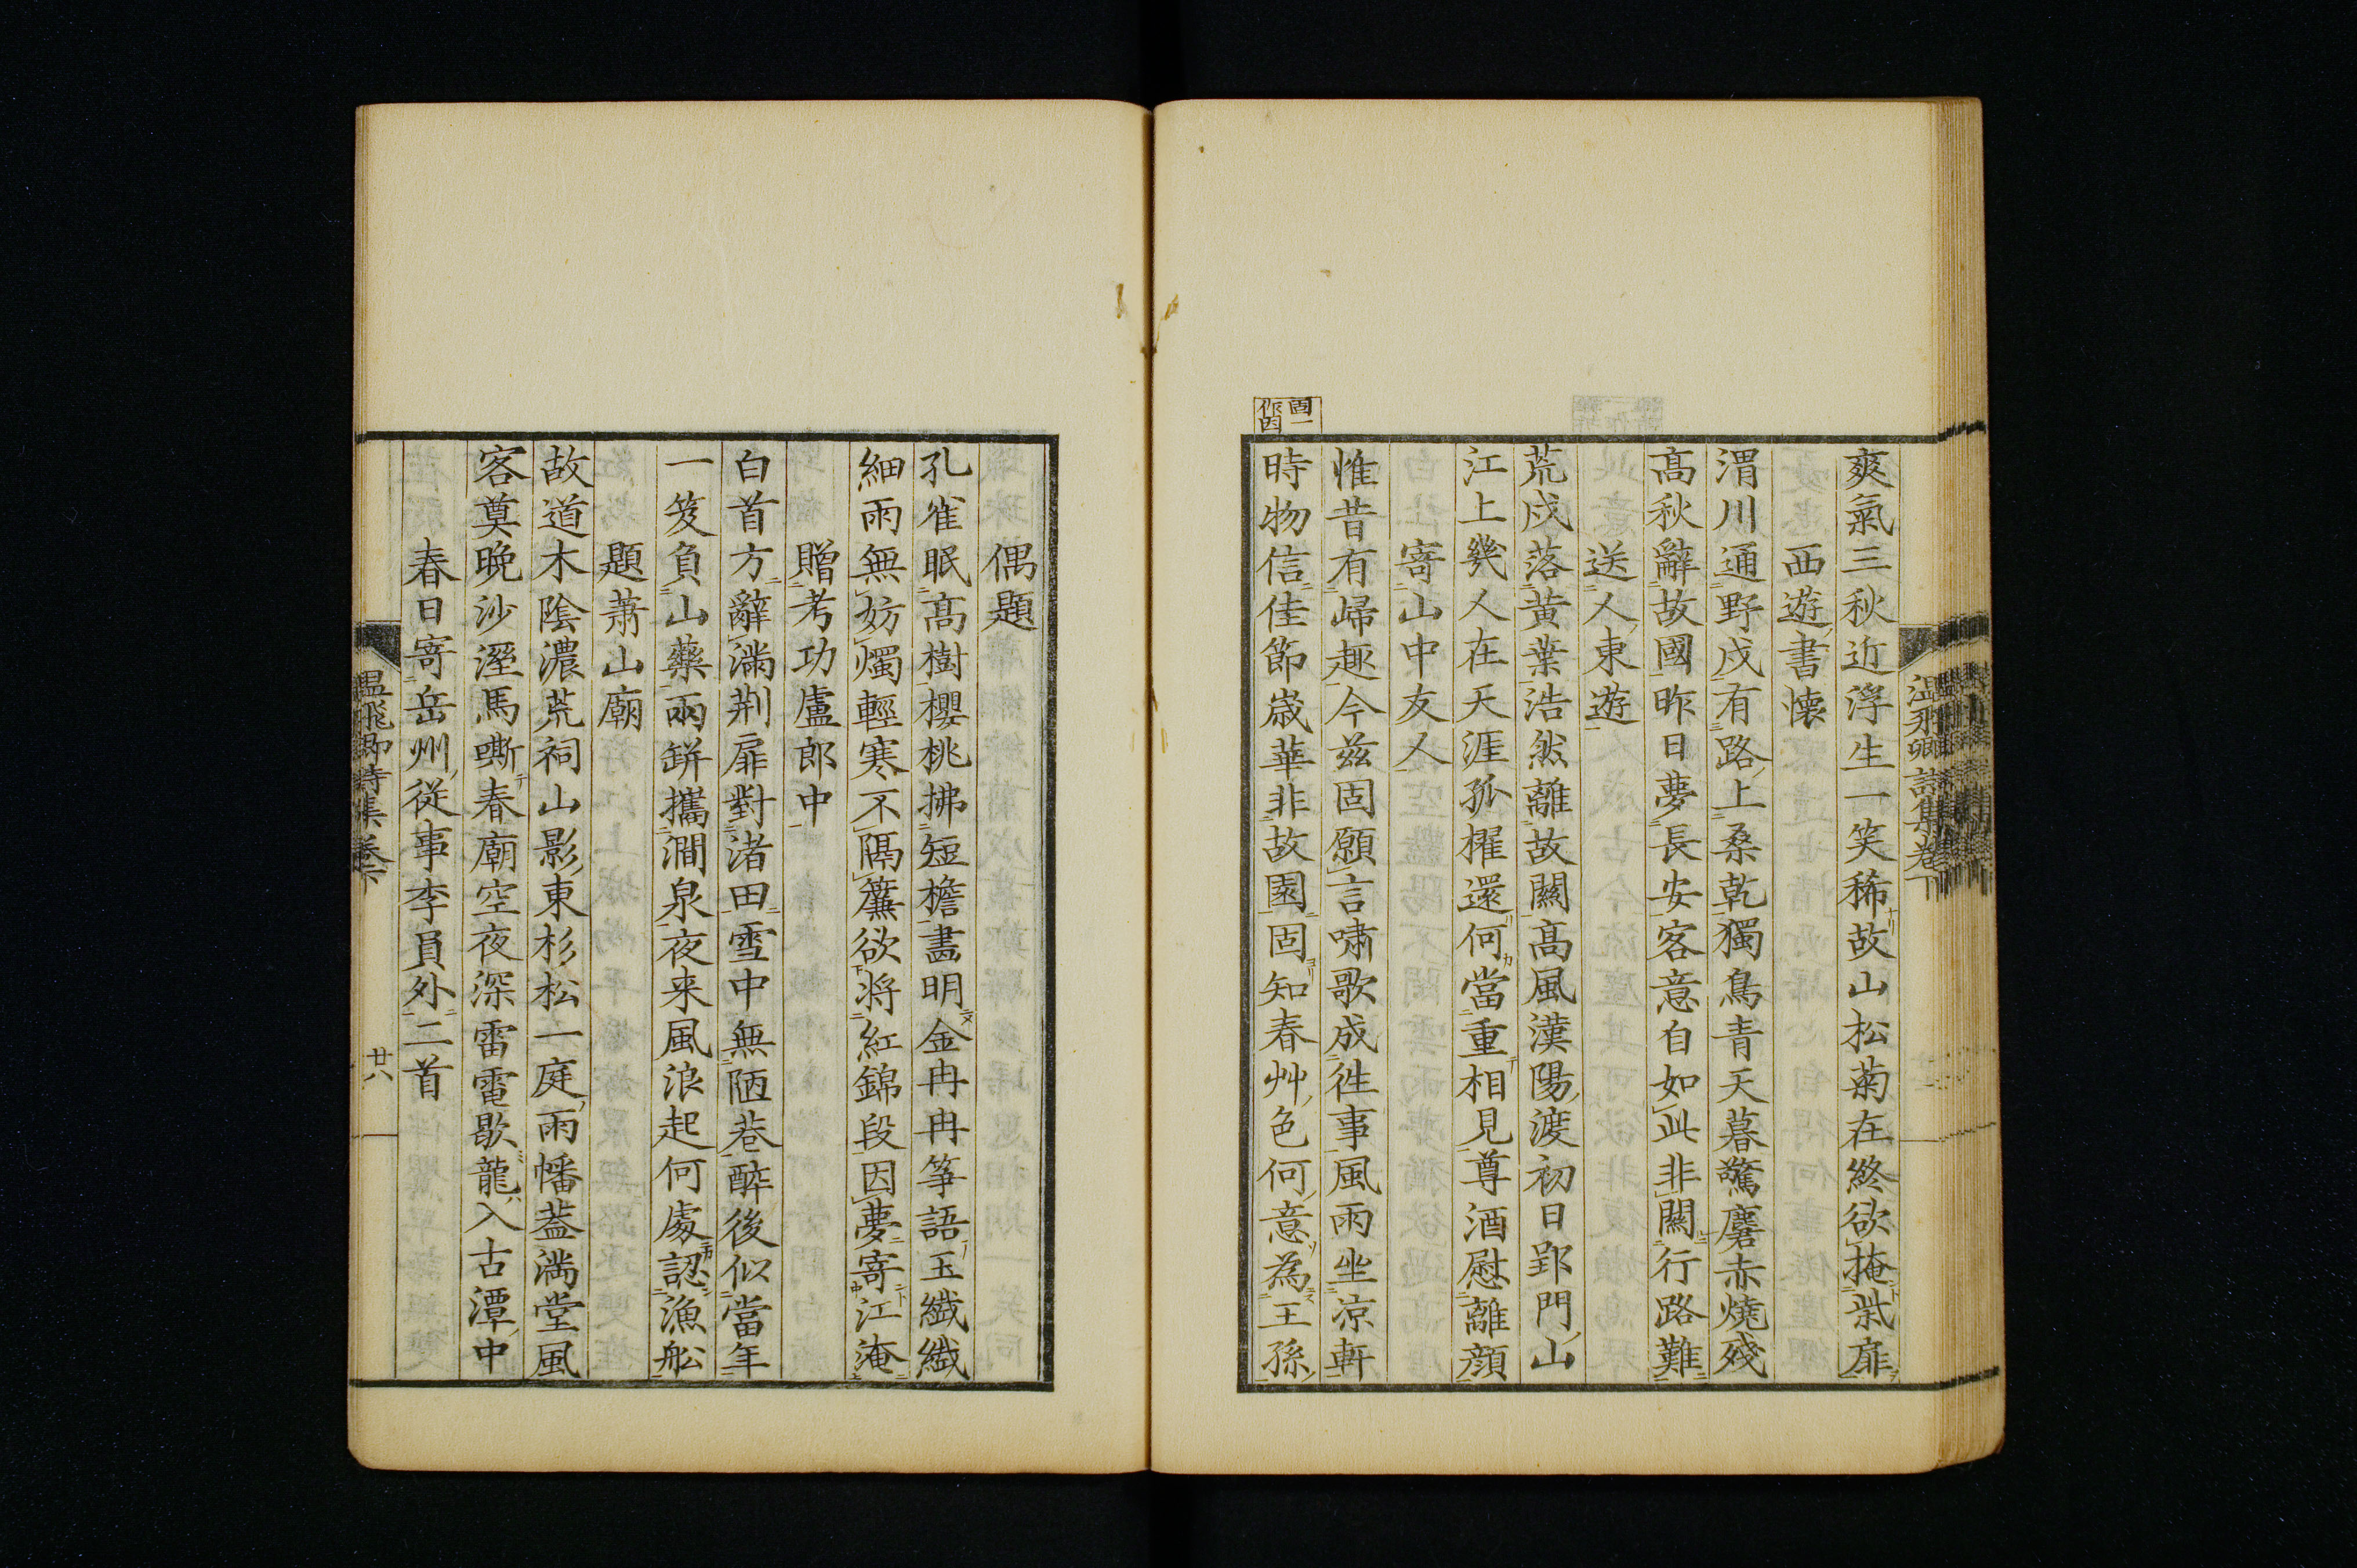 爽氣三秋近浮生一笑稀故山松菊在終欲掩柴扉
西遊書懷
渭川通野戍有路上桑乾獨鳥青天暮驚麏赤燒殘
高秋辭故國昨日夢長安客意自如此非關行路難
送人東遊
荒戍落黄葉浩然離故關高風漢陽渡初日郢門山
江上幾人在天涯孤櫂還何當重相見尊酒慰離顔
寄山中友人
惟昔有歸趣今兹固願言嘯歌成徃事風雨坐凉軒
固一作因
時物信佳節歳華非故園固知春艸色何意為王孫
偶題
孔雀眠高樹櫻桃拂短檐畵明金冉冉箏語玉纎纎
細雨無妨燭輕寒不隔簾欲将紅錦段因夢寄江淹
贈考功盧郎中
白首方辭滿荆扉對渚田雪中無陋巷醉後似當年
一笈負山藥兩缾攜澗泉夜来風浪起何處認漁舩
題蕭山廟
故道木陰濃荒祠山影東杉松一庭雨幡葢満堂風
客奠晩沙溼馬嘶春廟空夜深雷電歇龍入古潭中
春日寄岳州從事李員外二首
温飛卿詩集卷下
廿八